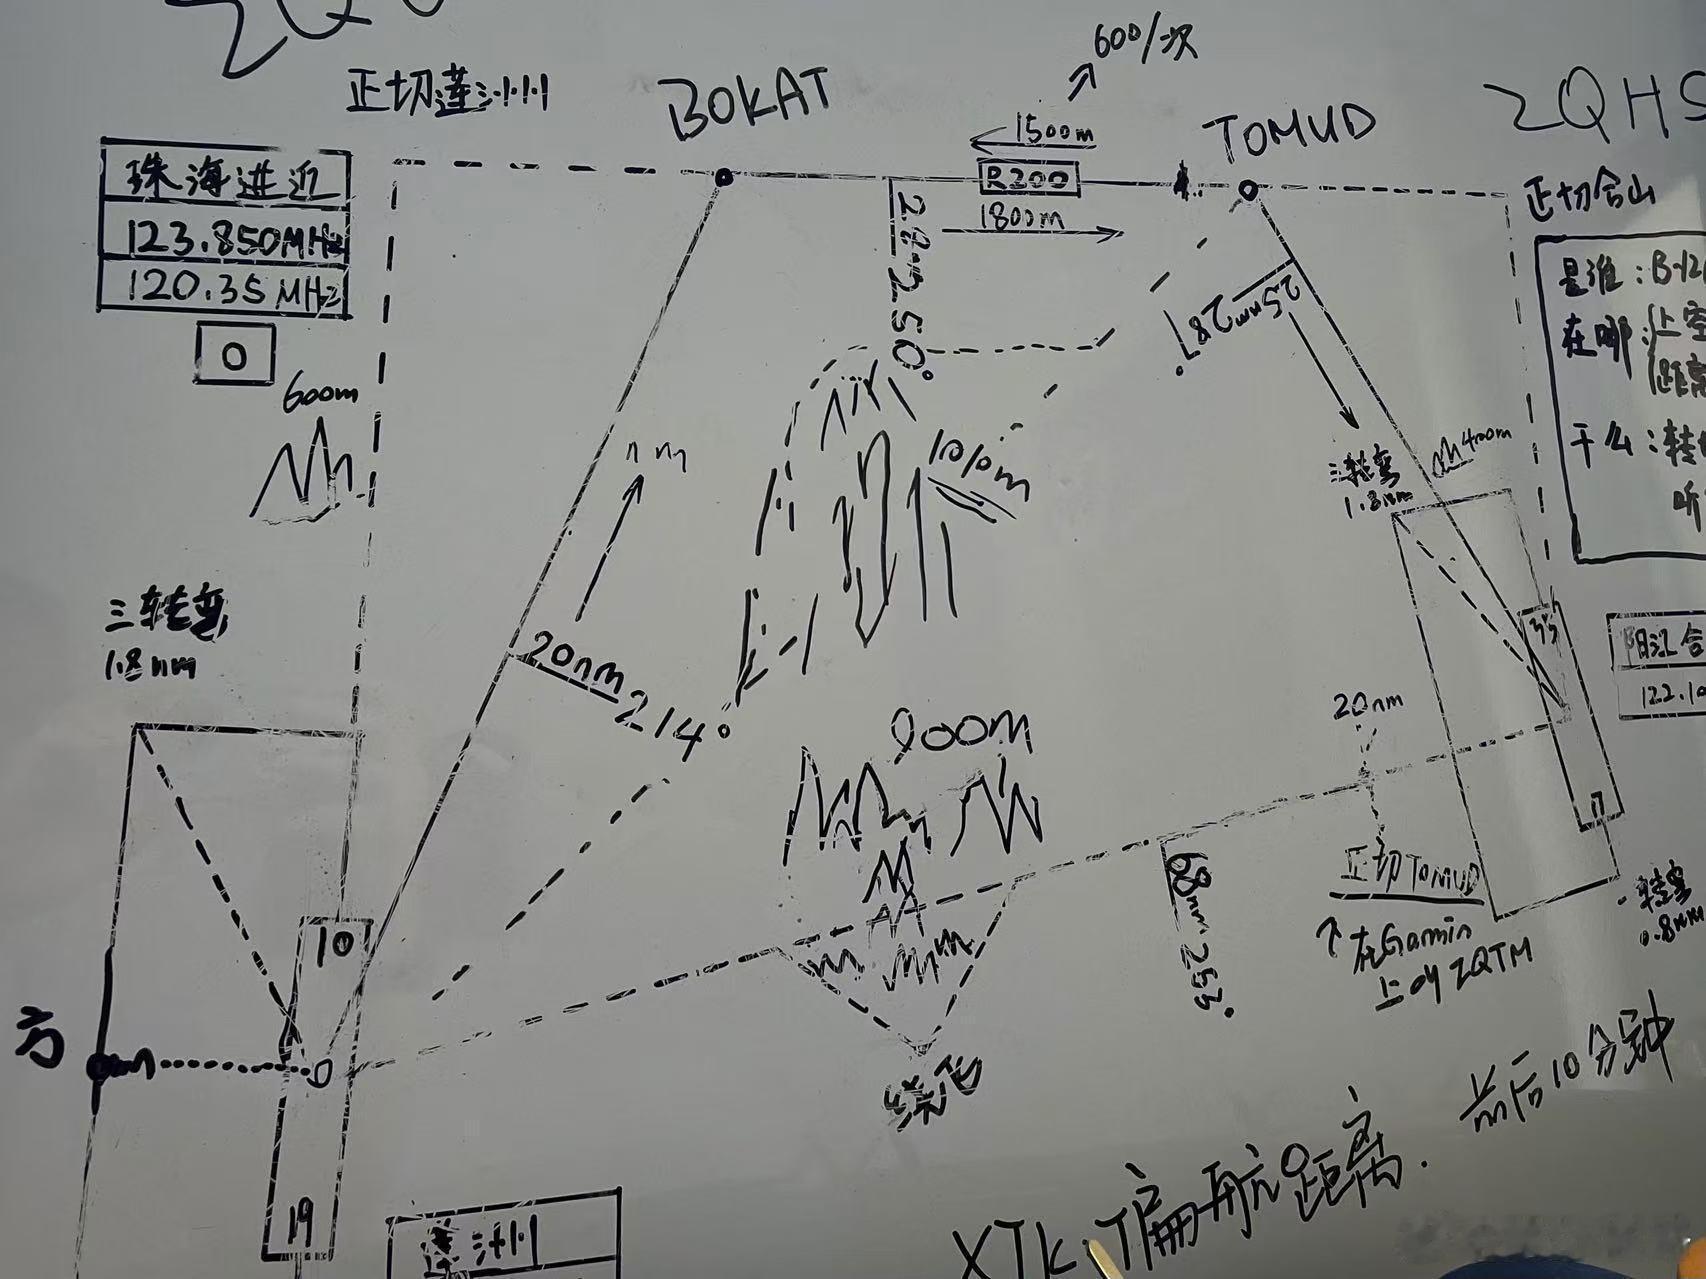 正切莲洲
BOKAT
600/次
1500m
R200
1800m
TOMUD
ZQHS
正切合山
珠海进近
123.850MHz
120.35MHz
0
600m
250°
25nm 287°
是谁:B-12
在哪:上空
距离
干么:转
听
nm
1010m
400m
三转弯
1.8nm
三转弯
1.8nm
20nm 214°
900m
35
阳江合
122.10
20nm
正切TOMUD
在Gamin
上的ZQTM
68nm 253°
17
一转弯
0.8nm
10
19
绕飞
莲洲
XTK:偏航距离.
前后10分钟